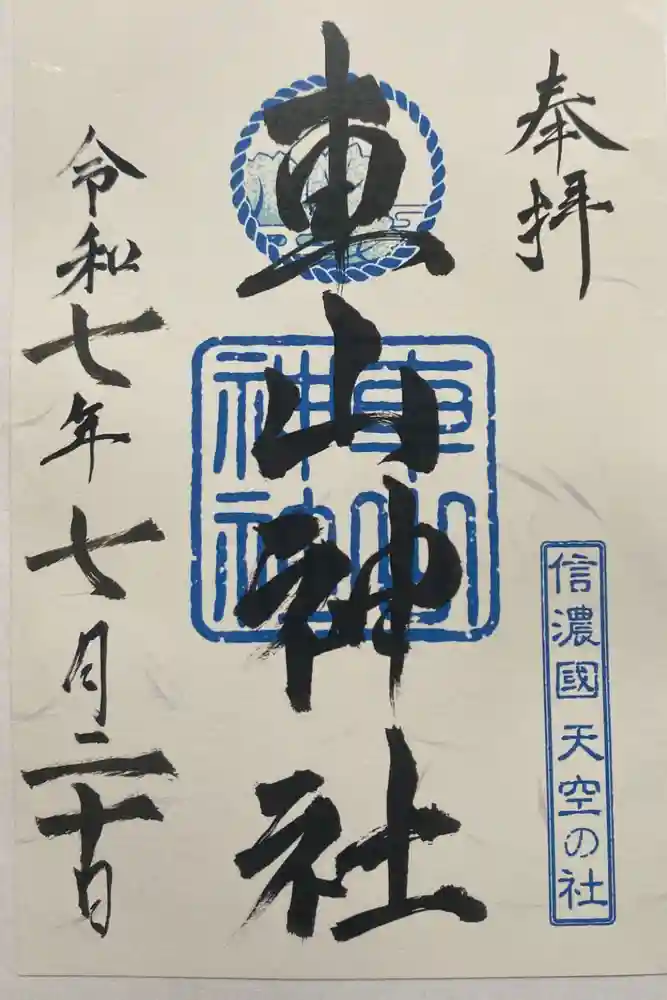 奉拝
信濃國 天空の社
車山神社
車山
神社
令和七年七月二十日